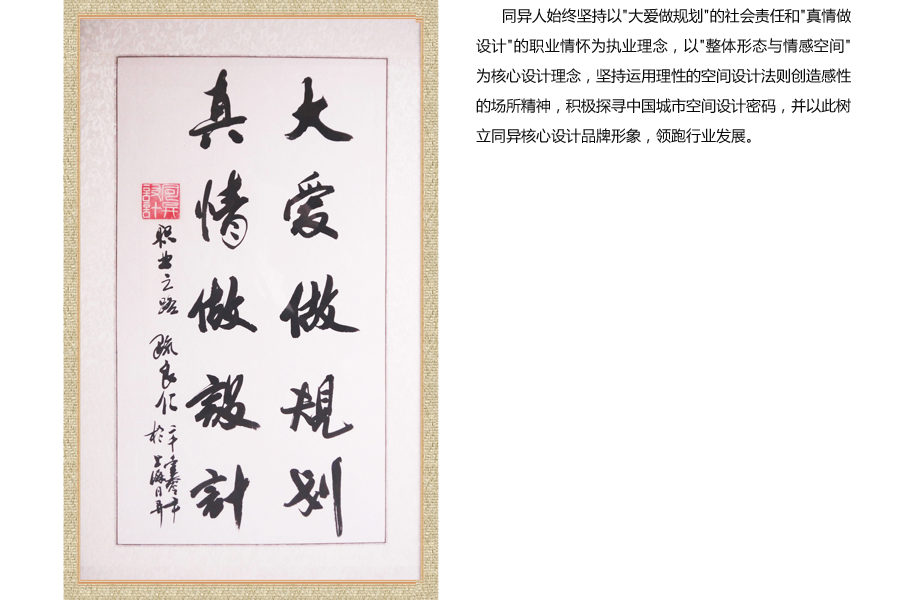 大爱做规划
真情做設計
同异設計
职业之路 疏良仁
同异人始终坚持以"大爱做规划"的社会责任和"真情做
设计"的职业情怀为执业理念，以"整体形态与情感空间"
为核心设计理念，坚持运用理性的空间设计法则创造感性
的场所精神，积极探寻中国城市空间设计密码，并以此树
立同异核心设计品牌形象，领跑行业发展。